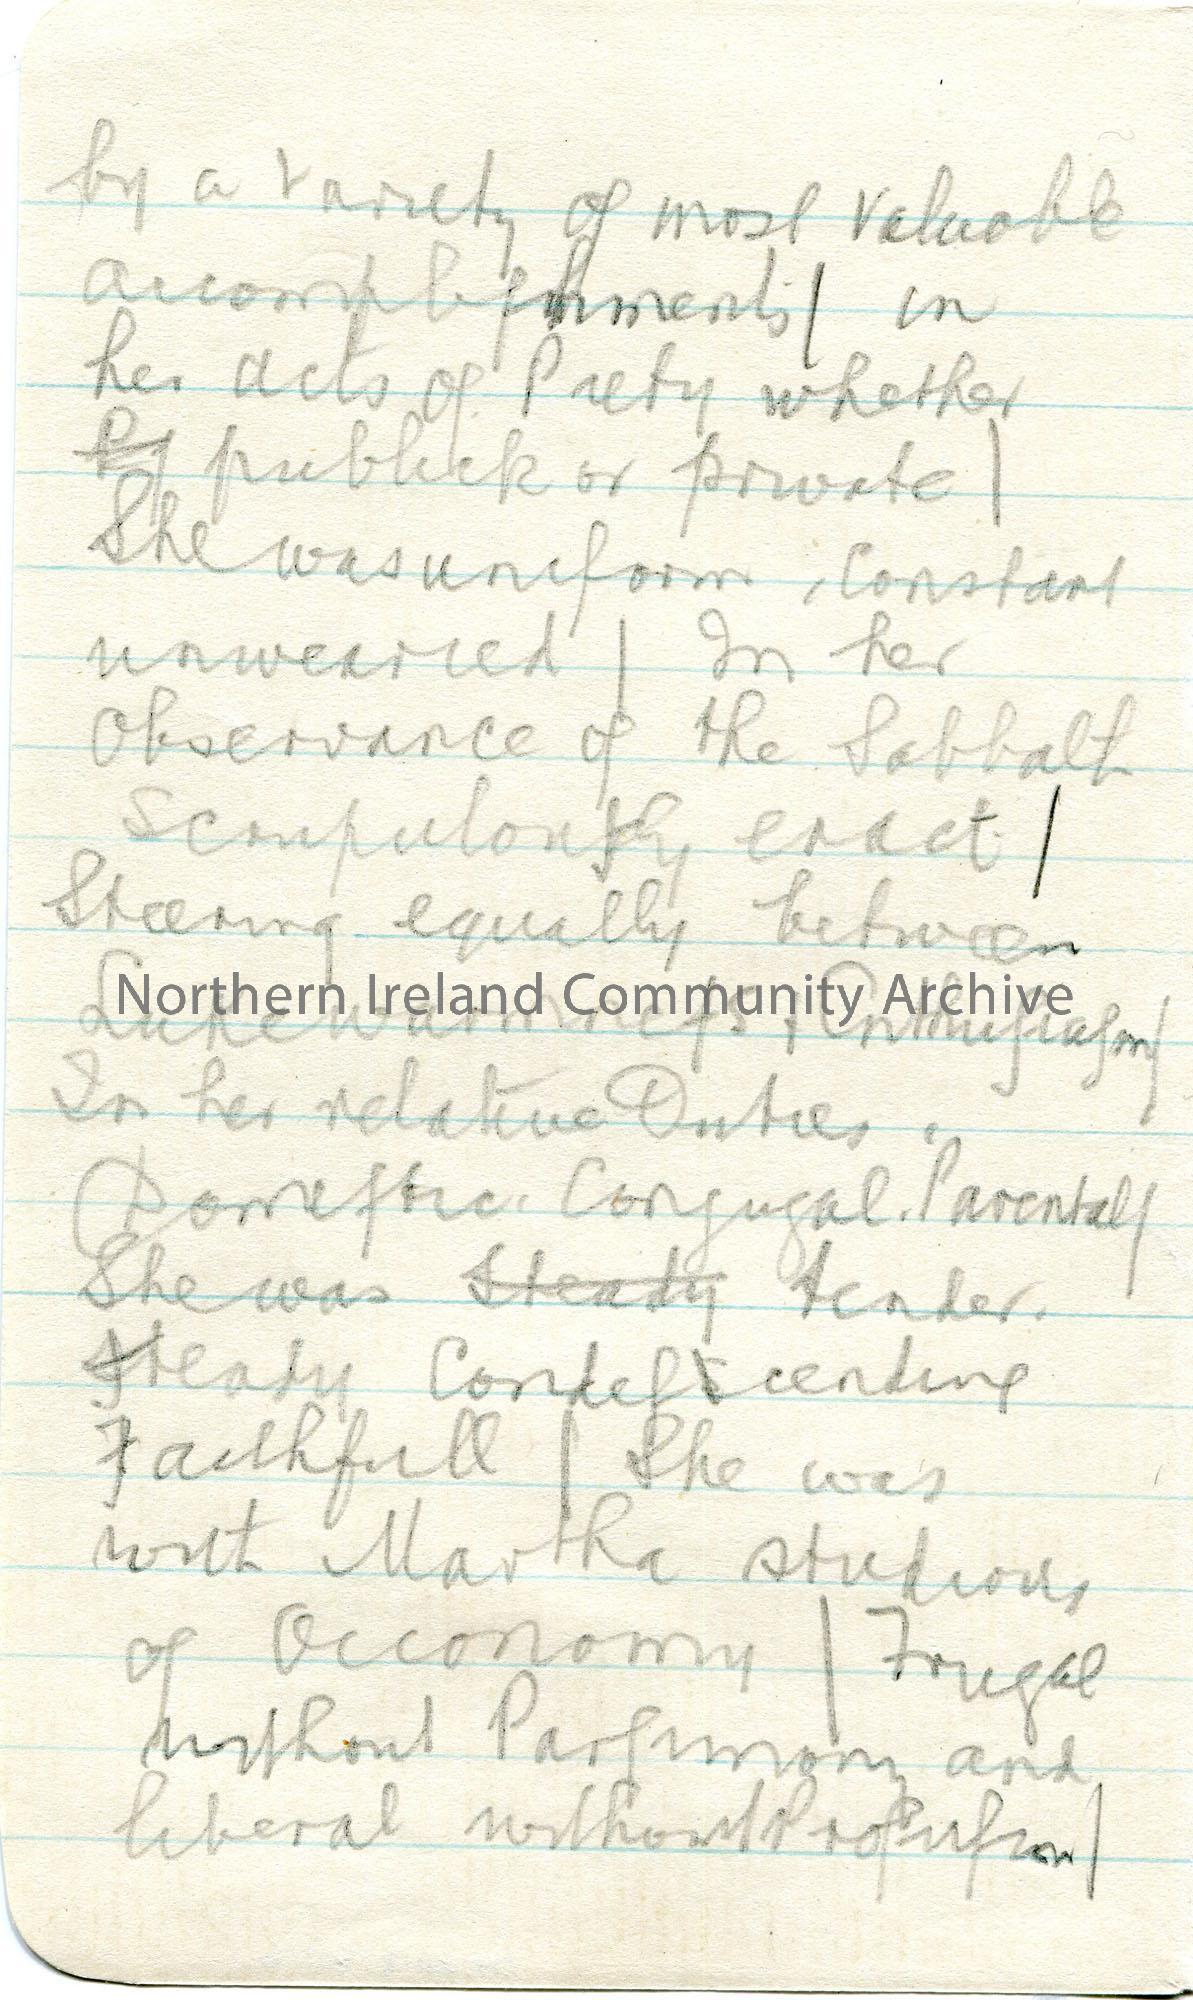 by a variety of most valuable
accompliſhments| in
her acts of Piety whether
publick or private|
She was uniform, Constant
unwearied| In her
Observance of the Sabbath
Scrupulously exact|
Steering equally between
Northern Ireland Community Archive
Lukewarmneſs, Enthuſiaſm|
In her relative Duties,
Domeſtic. Conjugal. Parental|
She was Steady tender.
Steady Condeſcending
Faithfull| She was
with Martha studious
of Oeconomy| Frugal
without Parſimony and
liberal without Profuſion|